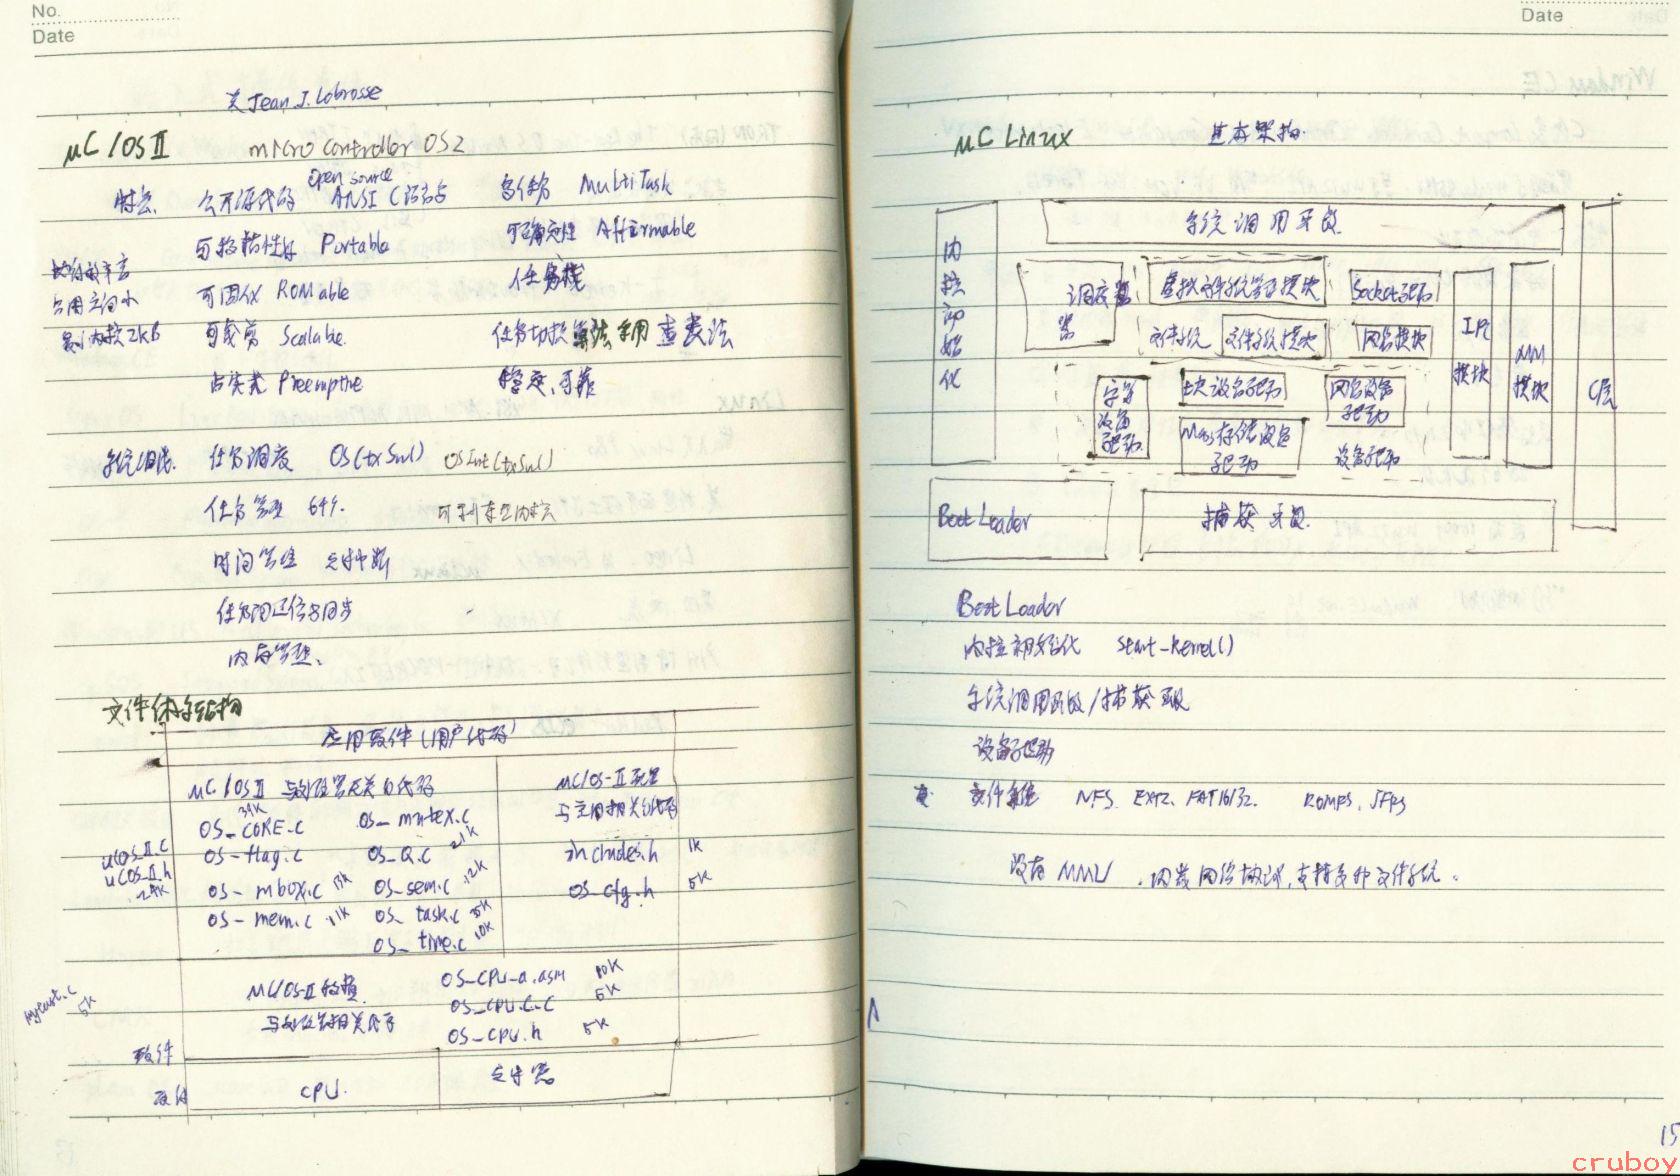 No.
Date
美 Jean J. Labrosse
μC/OS II micro controller OS2
特点 公开源代码 Open source ANSI C语言写 多任务 MultiTask
可移植性好 Portable 可确定性 Affirmable
占用空间小 可固化 ROMable 任务栈
最小内核2KB 可裁剪 Scalable. 任务切换算法采用查表法
占先式 Preemptive 稳定、可靠
系统组成. 任务调度 OSCtxSw() OSIntCtxSw()
任务管理 64个.
时间管理 定时中断
任务间通信与同步
内存管理.
文件体系结构
应用软件(用户代码)
μC/OS II 与处理器无关的代码
μC/OS-II配置
与应用相关的代码
OS_CORE.c 39K OS_mutex.c
OS-flag.c OS_Q.c
includes.h 1K
uCOS_II.c
uCOS_II.h
OS-mbox.c OS_sem.c 12K
OS_cfg.h 5K
OS-mem.c 11K OS_task.c
OS_time.c 10K
μC/OS-II移植
与处理器相关代码
OS-CPU-a.asm 10K
OS_CPU_C.C 5K
OS_CPU.h 5K
5K
软件
硬件
CPU. 定时器
Date
μC Linux
系统调用子级
内核初始化
调度器
虚拟文件系统管理模块
Socket驱动
文件系统
文件系统模块
网络模块
IPC模块
MM模块
C层
字符设备驱动
块设备驱动
网络设备驱动
设备驱动
Boot Loader
捕获子级
Boot Loader
内核初始化 Start-Kernel()
系统调用子级/捕获子级
设备驱动
文件系统 NFS. EXT2. FAT16/32. ROMFS. JFFS
没有MMU,内嵌网络协议,支持多种文件系统。
15
cruboy